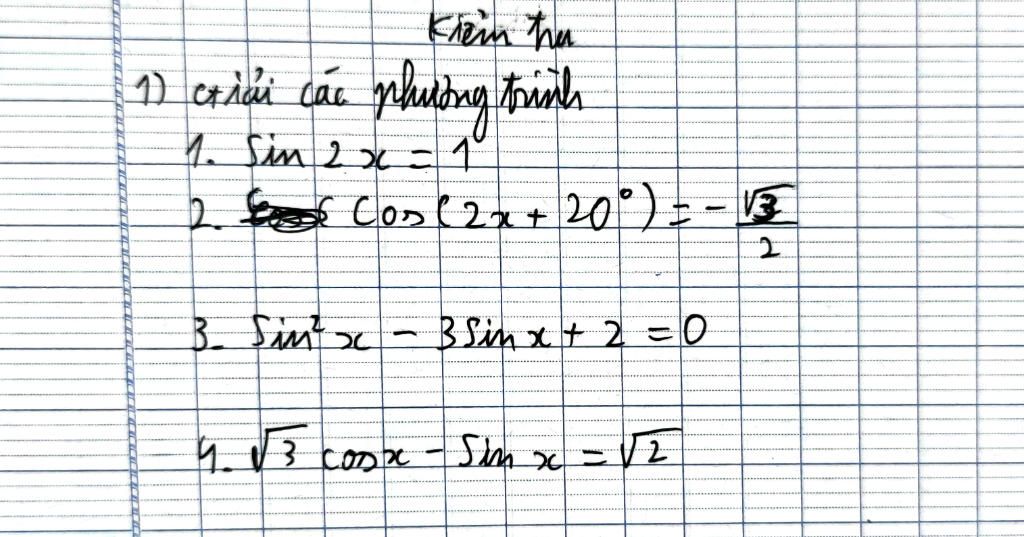 Kiểm tra
1) Giải các phương trình
1. Sin 2x = 1
2. Cos(2x + 20°) = -√3/2
3. Sin²x - 3Sin x + 2 = 0
4. √3 cosx - Sin x = √2